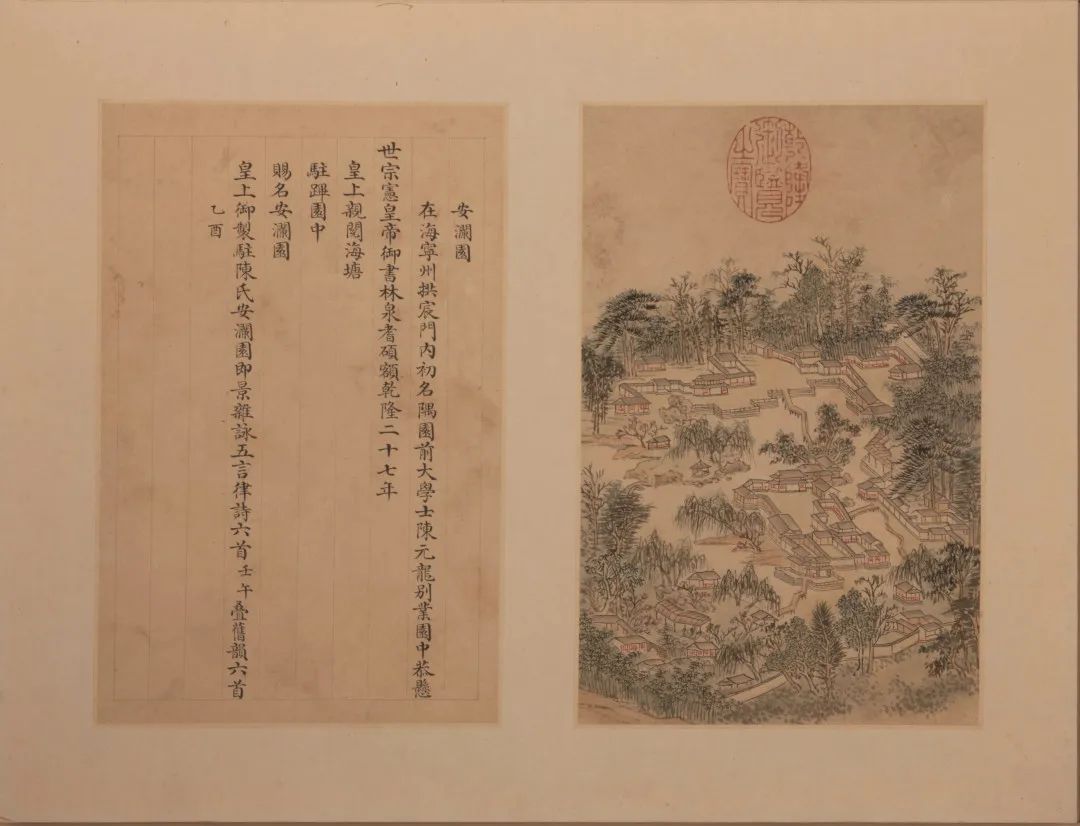 安瀾園
在海寧州拱宸門内初名隅園前大學士陳元龍别業園中恭懸
世宗憲皇帝御書林泉耆碩額乾隆二十七年
皇上親閱海塘
駐蹕園中
賜名安瀾園
皇上御製駐陳氏安瀾園即景雜詠五言律詩六首壬午疊舊韻六首
乙酉
乾隆御覽之寶